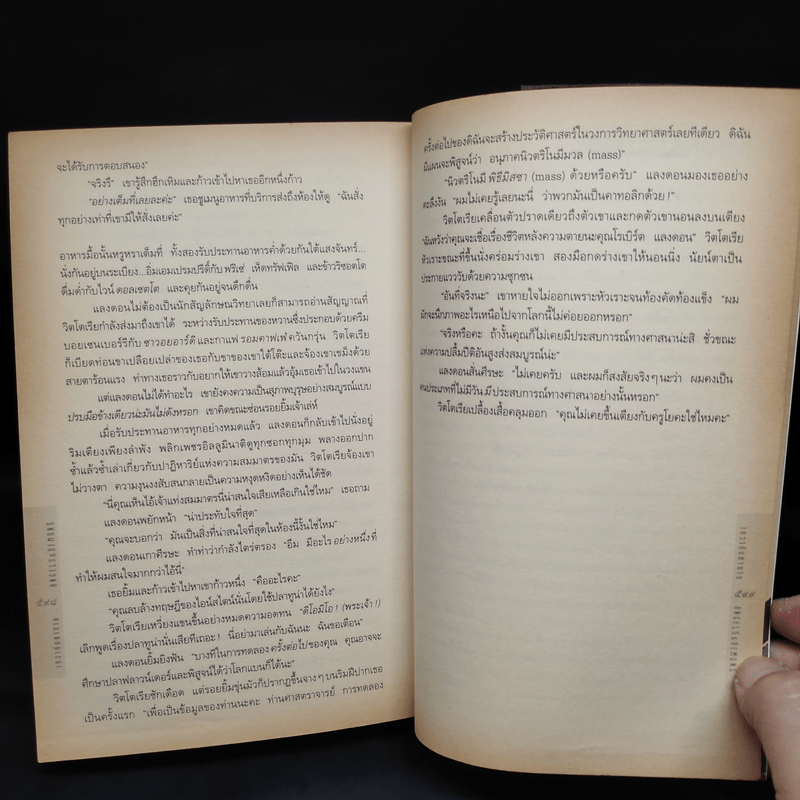 จะได้รับการตอบสนอง"
"จริงรึ" เขารู้สึกฮึกเหิมและก้าวเข้าไปหาเธออีกหนึ่งก้าว
"อย่างเต็มที่เลยละค่ะ" เธอชูเมนูอาหารที่บริการส่งถึงห้องให้ดู "ฉันสั่ง
ทุกอย่างเท่าที่เขามีให้สั่งเลยค่ะ"
อาหารมื้อนั้นหรูหราเต็มที่ ทั้งสองรับประทานอาหารค่ำด้วยกันใต้แสงจันทร์...
นั่งกันอยู่บนระเบียง...อิ่มเอมเปรมปรีดิ์กับ ฟรีเซ่ เห็ดทรัฟเฟิล และข้าวริซอตโต
ดื่มด่ำกับไวน์ ดอลเซตโต และคุยกันอยู่จนดึกดื่น
แลงดอนไม่ต้องเป็นนักสัญลักษณวิทยาเลยก็สามารถอ่านสัญญาณที่
วิตโตเรียกำลังส่งมาถึงเขาได้ ระหว่างรับประทานของหวานซึ่งประกอบด้วยครีม
บอยเซนเบอร์รีกับ ซาวอยอาร์ดิ และกาแฟ รอมคาฟเฟ่ ควันกรุ่น วิตโตเรีย
ก็เบียดท่อนขาเปลือยเปล่าของเธอกับขาของเขาใต้โต๊ะและจ้องเขาเขม็งด้วย
สายตาร้อนแรง ท่าทางเธอราวกับอยากให้เขาวางส้อมแล้วอุ้มเธอเข้าไปในวงแขน
แต่แลงดอนไม่ได้ทำอะไร เขายังคงความเป็นสุภาพบุรุษอย่างสมบูรณ์แบบ
ปรบมือข้างเดียวน่ะมันไม่ดังหรอก เขาคิดขณะซ่อนรอยยิ้มเจ้าเล่ห์
เมื่อรับประทานอาหารทุกอย่างหมดแล้ว แลงดอนก็กลับเข้าไปนั่งอยู่
ริมเตียงเพียงลำพัง พลิกเพชรอิลลูมินาติดูทุกซอกทุกมุม พลางออกปาก
ซ้ำแล้วซ้ำเล่าเกี่ยวกับปาฏิหาริย์แห่งความสมมาตรของมัน วิตโตเรียจ้องเขา
ไม่วางตา ความงุนงงสับสนกลายเป็นความหงุดหงิดอย่างเห็นได้ชัด
"นี่คุณเห็นไอ้เจ้าแท่งสมมาตรนี่น่าสนใจเสียเหลือเกินใช่ไหม" เธอถาม
แลงดอนพยักหน้า "น่าประทับใจที่สุด"
"คุณจะบอกว่า มันเป็นสิ่งที่น่าสนใจที่สุดในห้องนี้งั้นใช่ไหม"
แลงดอนเกาศีรษะ ทำท่าว่ากำลังไตร่ตรอง "อืม มีอะไร อย่างหนึ่งที่
ทำให้ผมสนใจมากกว่าไอ้นี่"
เธอยิ้มและก้าวเข้าไปหาเขาก้าวหนึ่ง "คืออะไรคะ"
"คุณลบล้างทฤษฎีของไอน์สไตน์นั่นโดยใช้ปลาทูน่าได้ยังไง"
วิตโตเรียเหวี่ยงแขนขึ้นอย่างหมดความอดทน "ดีโอมีโอ! (พระเจ้า!)
เลิกพูดเรื่องปลาทูน่านั่นเสียทีเถอะ! นี่อย่ามาเล่นกับฉันนะ ฉันขอเตือน"
แลงดอนยิ้มยิงฟัน "บางทีในการทดลองครั้งต่อไปของคุณ คุณอาจจะ
ศึกษาปลาฟลาวน์เดอร์และพิสูจน์ได้ว่าโลกแบนก็ได้นะ"
วิตโตเรียชักเดือด แต่รอยยิ้มขุ่นมัวก็ปรากฏขึ้นจางๆ บนริมฝีปากเธอ
เป็นครั้งแรก "เพื่อเป็นข้อมูลของท่านนะคะ ท่านศาสตราจารย์ การทดลอง
๕๙๘
ครั้งต่อไปของดิฉันจะสร้างประวัติศาสตร์ในวงการวิทยาศาสตร์เลยทีเดียว ดิฉัน
มีแผนจะพิสูจน์ว่า อนุภาคนิวตริโนมีมวล (mass)"
"นิวตริโนมี พิธีมิสซา (mass) ด้วยหรือครับ" แลงดอนมองเธออย่าง
ตะลึงงัน "ผมไม่เคยรู้เลยนะนี่ ว่าพวกมันเป็นคาทอลิกด้วย!"
วิตโตเรียเคลื่อนตัวปราดเดียวถึงตัวเขาและกดตัวเขานอนลงบนเตียง
"ฉันหวังว่าคุณจะเชื่อเรื่องชีวิตหลังความตายนะคุณโรเบิร์ต แลงดอน" วิตโตเรีย
หัวเราะขณะที่ขึ้นนั่งคร่อมร่างเขา สองมือกดร่างเขาให้นอนนิ่ง นัยน์ตาเป็น
ประกายแวววับด้วยความซุกซน
"อันที่จริงนะ" เขาหายใจไม่ออกเพราะหัวเราะจนท้องคัดท้องแข็ง "ผม
มักจะนึกภาพอะไรเหนือไปจากโลกนี้ไม่ค่อยออกหรอก"
"จริงหรือคะ ถ้างั้นคุณก็ไม่เคยมีประสบการณ์ทางศาสนาน่ะสิ ชั่วขณะ
แห่งความปลื้มปีติอันสูงส่งสมบูรณ์น่ะ"
แลงดอนสั่นศีรษะ "ไม่เคยครับ และผมก็สงสัยจริงๆ นะว่า ผมคงเป็น
คนประเภทที่ไม่มีวันมีประสบการณ์ทางศาสนาอย่างนั้นหรอก"
วิตโตเรียเปลื้องเสื้อคลุมออก "คุณไม่เคยขึ้นเตียงกับครูโยคะใช่ไหมคะ"
๕๙๙